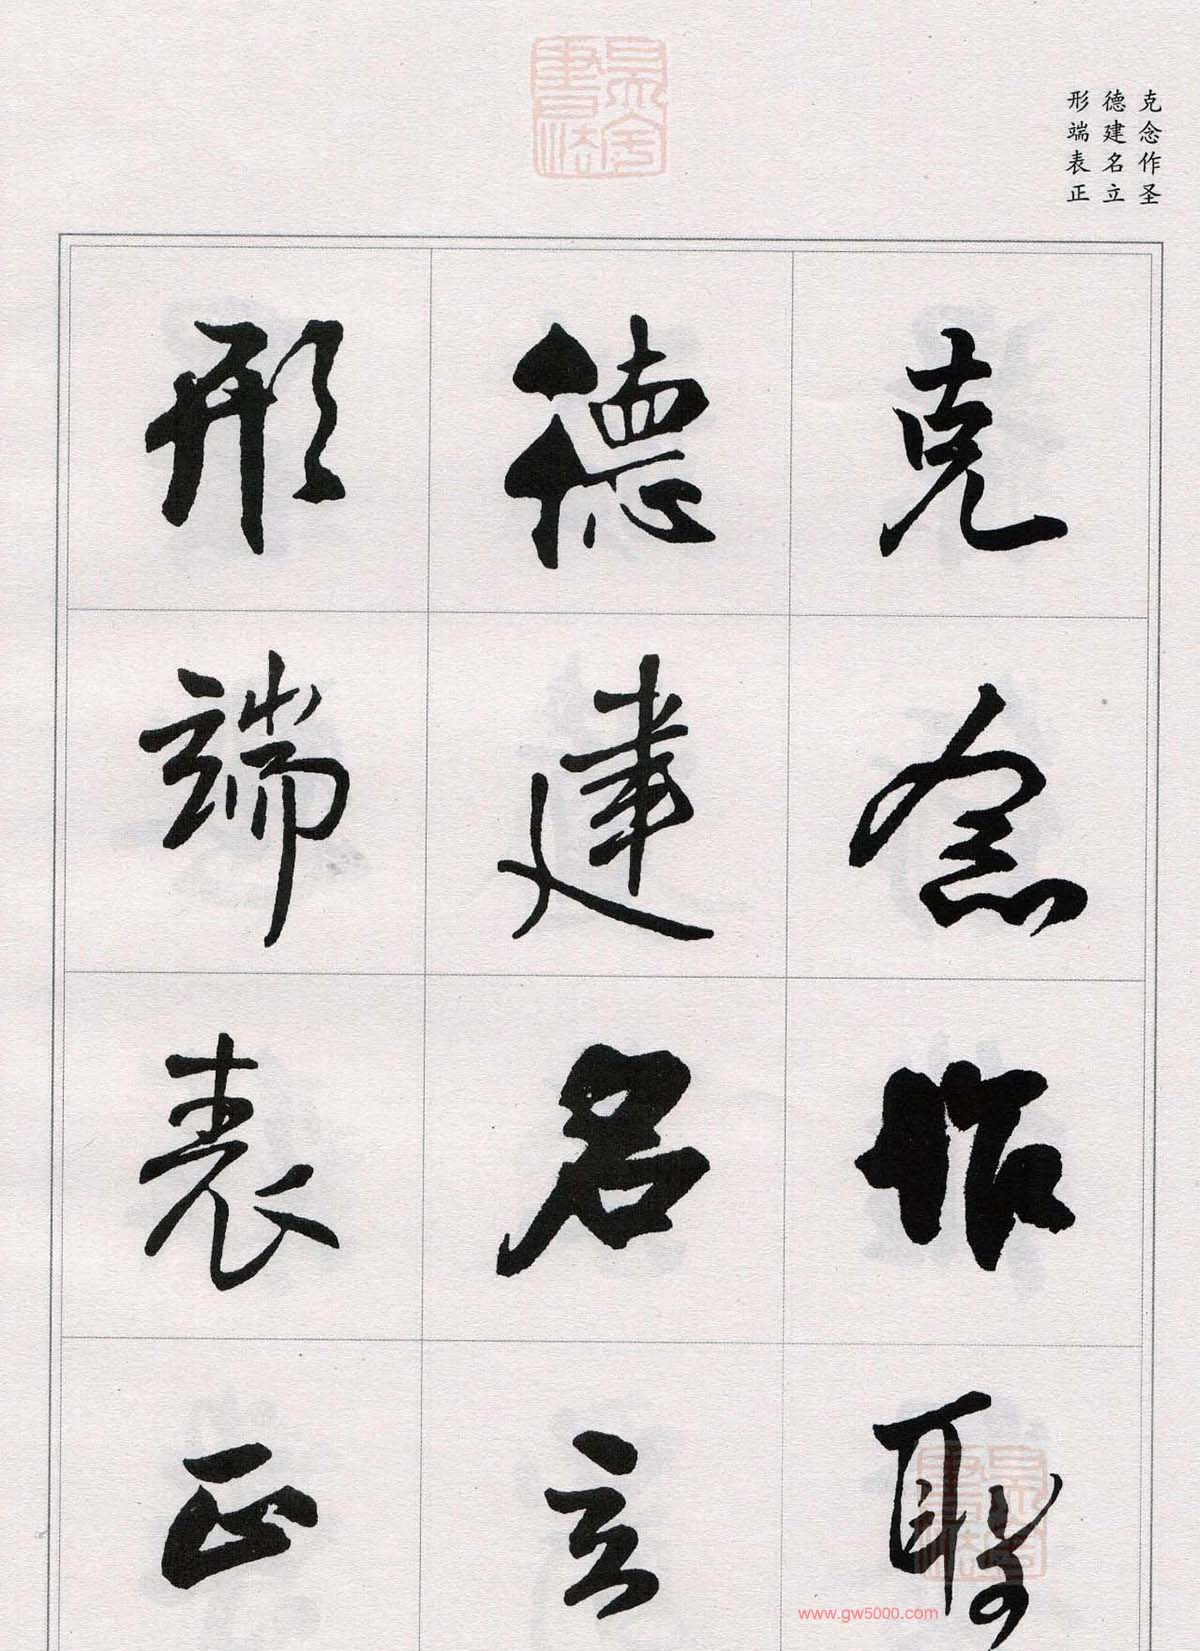 克念作圣
德建名立
形端表正
克念作聖
德建名立
形端表正
www.gw5000.com